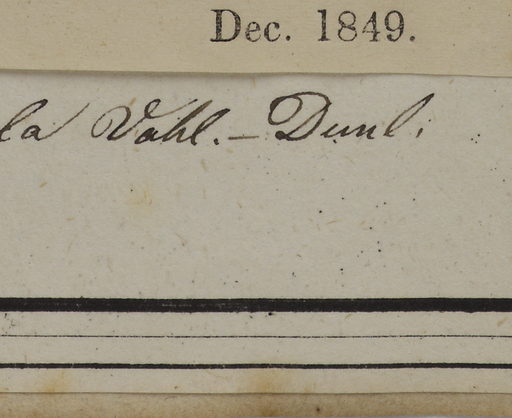 Dec. 1849.
la Vahl. – Dunl.